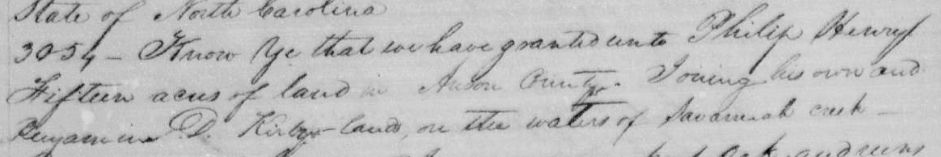 State of North Carolina
3054 – Know Ye that we have granted unto Philip Henry
Fifteen acres of land in Anson County. Joining his own and
Benjamin D. Kirby land, on the waters of Savannah creek –